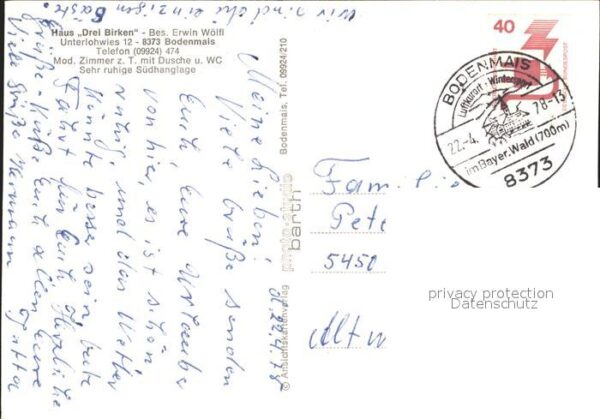 Haus „Drei Birken" - Bes. Erwin Wölfl
Unterlohwies 12 - 8373 Bodenmais
Telefon (09924) 474
Mod. Zimmer z. T. mit Dusche u. WC
Sehr ruhige Südhanglage
wir sind die einzigen
Gäste.
d. 22.4.78
Meine Lieben!
Viele Grüße senden
Euch, Eure Urlauber
von hier, es ist schön
ruhig und das Wetter
könnte besser sein
Fahrt für Euch Herzliche
Grüße + Küße Euch allen Eure
Viele Grüße Hermann
Bodenmais, Tel. 09924/210
photo-studio
barth
© Ansichtskartenverlag
40
DEUTSCHE BUNDESPOST
BODENMAIS
Luftkurort - Wintersport
22.-4. 78-13
im Bayer. Wald (700m)
8373
Familie
Pete
5450
privacy protection
Datenschutz